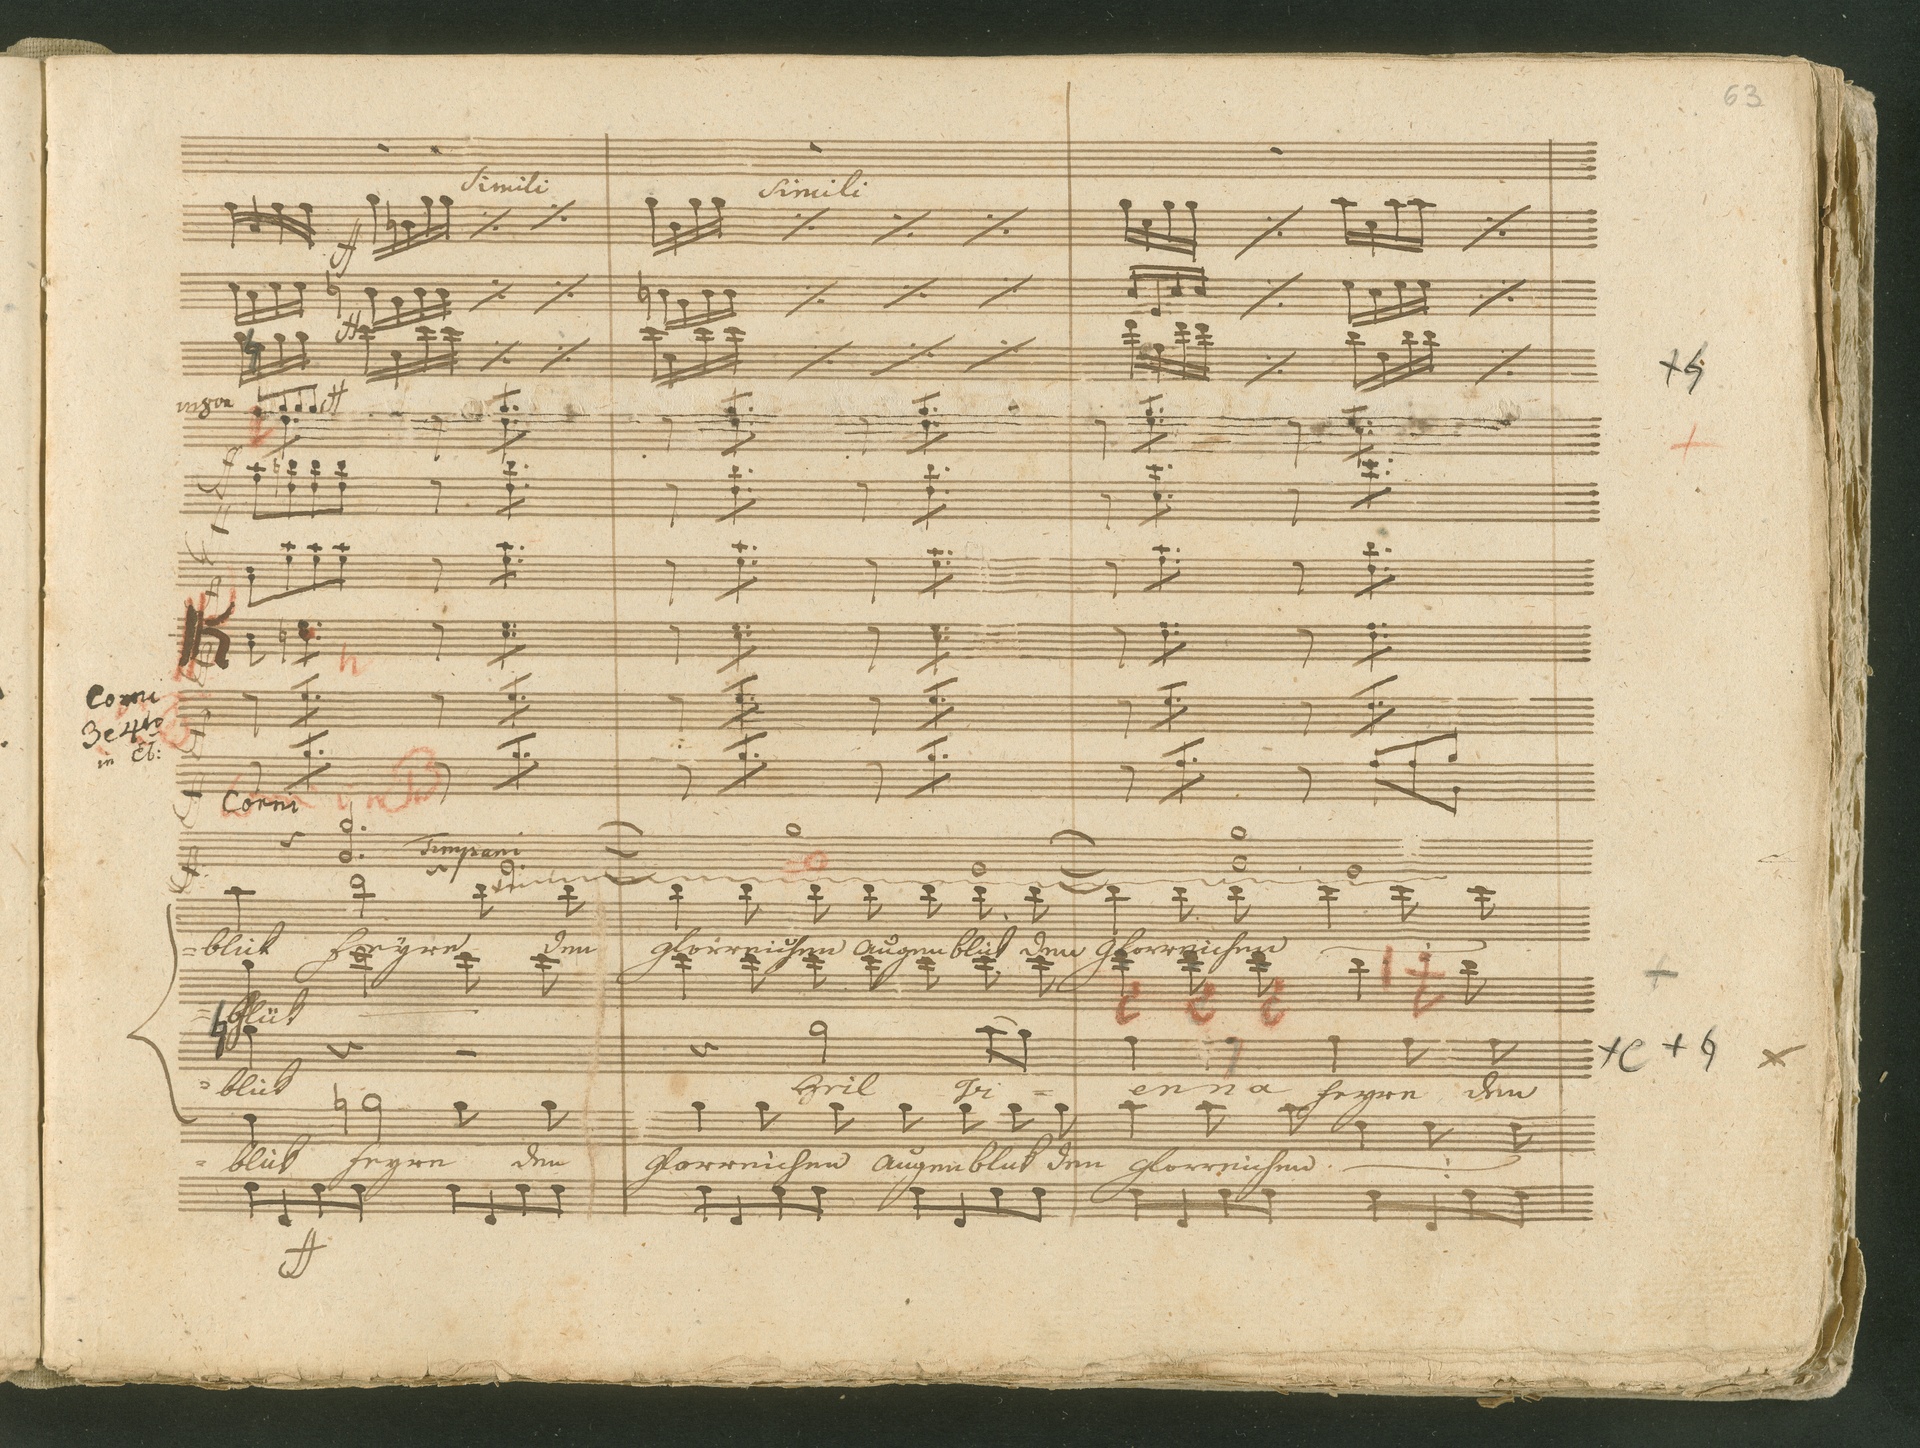 63
Simili Simili
ff
ff
ff
ff
Corni
3 e 4to
in Eb:
Corni in B
Timpani
=blick feyre den glorreichen Augenblick den glorreichen
=blick
=blick Heil Vi = enna feyre den
=blick feyre den glorreichen Augenblick den glorreichen
ff